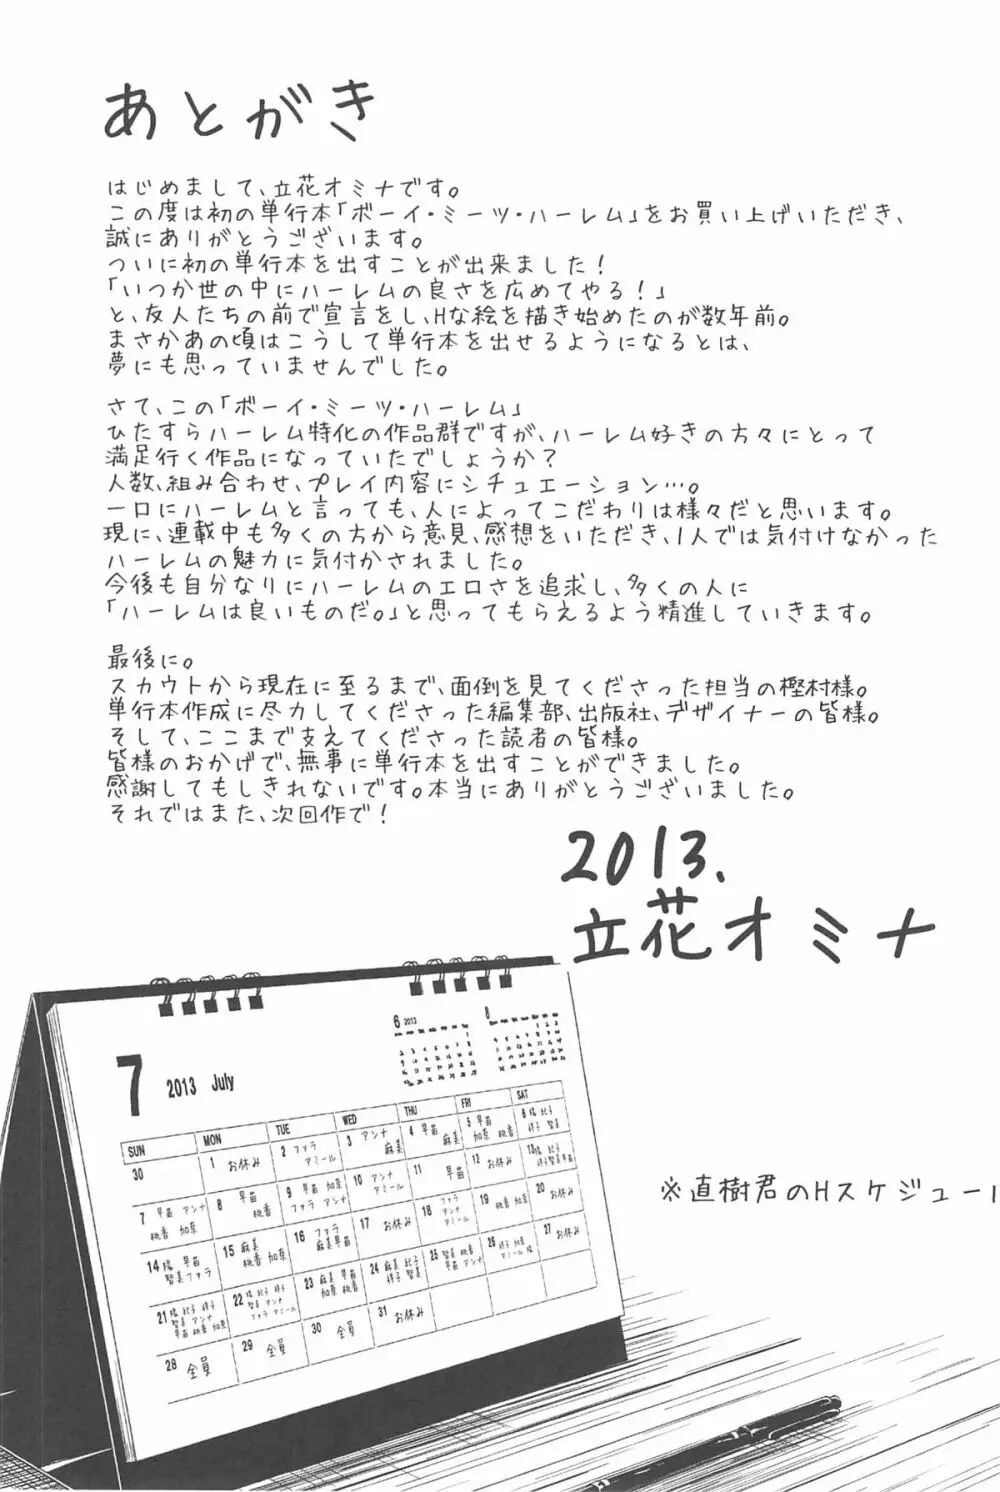 あとがき
はじめまして、立花オミナです。
この度は初の単行本「ボーイ・ミーツ・ハーレム」をお買い上げいただき、
誠にありがとうございます。
ついに初の単行本を出すことが出来ました!
「いつか世の中にハーレムの良さを広めてやる!」
と、友人たちの前で宣言をし、Hな絵を描き始めたのが数年前。
まさかあの頃はこうして単行本を出せるようになるとは、
夢にも思っていませんでした。
さて、この「ボーイ・ミーツ・ハーレム」
ひたすらハーレム特化の作品群ですが、ハーレム好きの方々にとって
満足行く作品になっていたでしょうか?
人数、組み合わせ、プレイ内容にシチュエーション…。
一口にハーレムと言っても、人によってこだわりは様々だと思います。
現に、連載中も多くの方から意見、感想をいただき、1人では気付けなかった
ハーレムの魅力に気付かされました。
今後も自分なりにハーレムのエロさを追求し、多くの人に
「ハーレムは良いものだ。」と思ってもらえるよう精進していきます。
最後に。
スカウトから現在に至るまで、面倒を見てくださった担当の樫村様。
単行本作成に尽力してくださった編集部、出版社、デザイナーの皆様。
そして、ここまで支えてくださった読者の皆様。
皆様のおかげで、無事に単行本を出すことができました。
感謝してもしきれないです。本当にありがとうございました。
それではまた、次回作で!
2013.
立花オミナ
6 2013
8
7 2013 July
SUN MON TUE WED THU FRI SAT
30 1 お休み 2 ファラ アミール 3 アンナ 麻美 4 早苗 麻美 5 早苗 加奈 桃香 6
7 早苗 アンナ 桃香 加奈 8 早苗 桃香 9 早苗 加奈 ファラ アンナ 10 アンナ アミール 11 早苗 12 お休み 13
14 早苗 智美 ファラ 15 麻美 桃香 加奈 16 ファラ 麻美 早苗 17 お休み 18 ファラ アンナ アミール 19 桃香 加奈 20 お休み
21 智美 アンナ 早苗 桃香 加奈 22 智美 アンナ ファラ アミール 23 麻美 早苗 加奈 桃香 24 麻美 祥子 智美 25 智美 桃香 早苗 アンナ 26 27 お休み
28 全員 29 全員 30 全員 31 お休み
※直樹君のHスケジュール